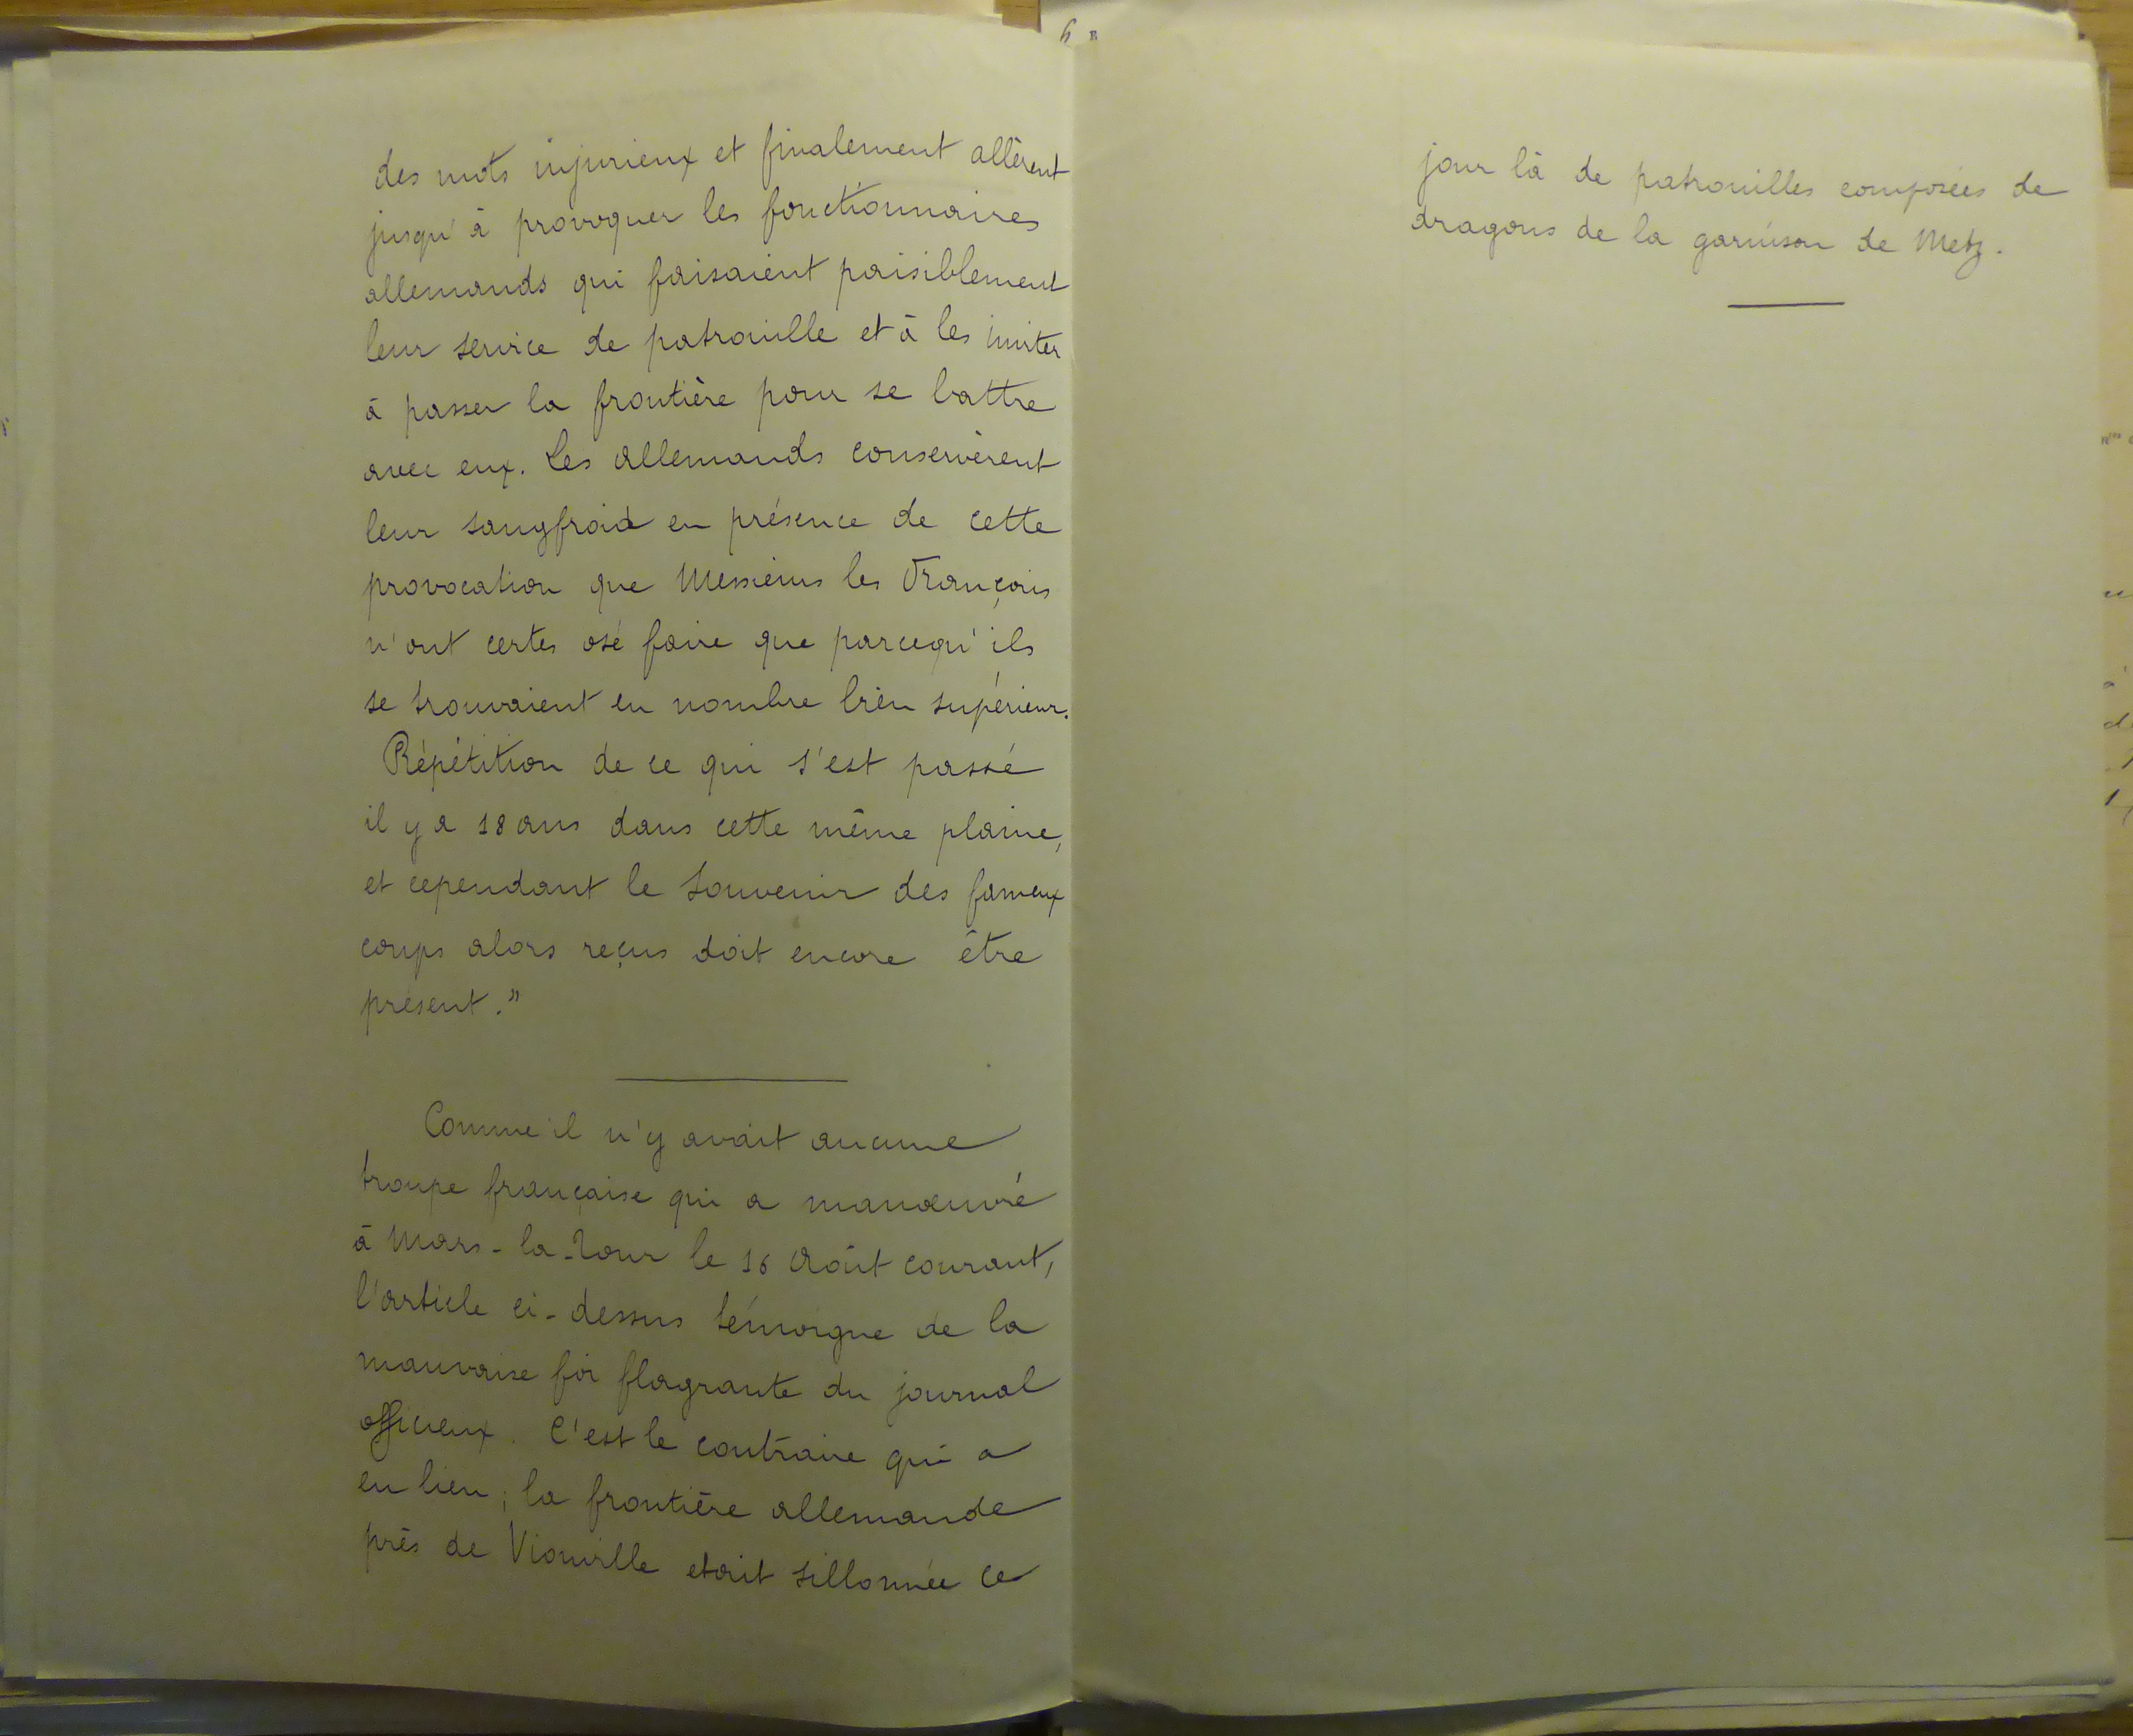 des mots injurieux et finalement allèrent
jusqu'à provoquer les fonctionnaires
allemands qui faisaient paisiblement
leur service de patrouille et à les inviter
à passer la frontière pour se battre
avec eux. Les allemands conservèrent
leur sangfroid en présence de cette
provocation que Messieurs les Français
n'ont certes osé faire que parcequ'ils
se trouvaient en nombre bien supérieur.
Répétition de ce qui s'est passé
il y a 18 ans dans cette même plaine,
et cependant le souvenir des fameux
coups alors reçus doit encore être
présent."
Comme il n'y avait aucune
troupe française qui a manœuvré
à Mars-la-Tour le 16 Août courant,
l'article ci-dessus témoigne de la
mauvaise foi flagrante du journal
officieux. C'est le contraire qui a
eu lieu; la frontière allemande
près de Vionville etait sillonnée ce
jour là de patrouilles composées de
dragons de la garnison de Metz.